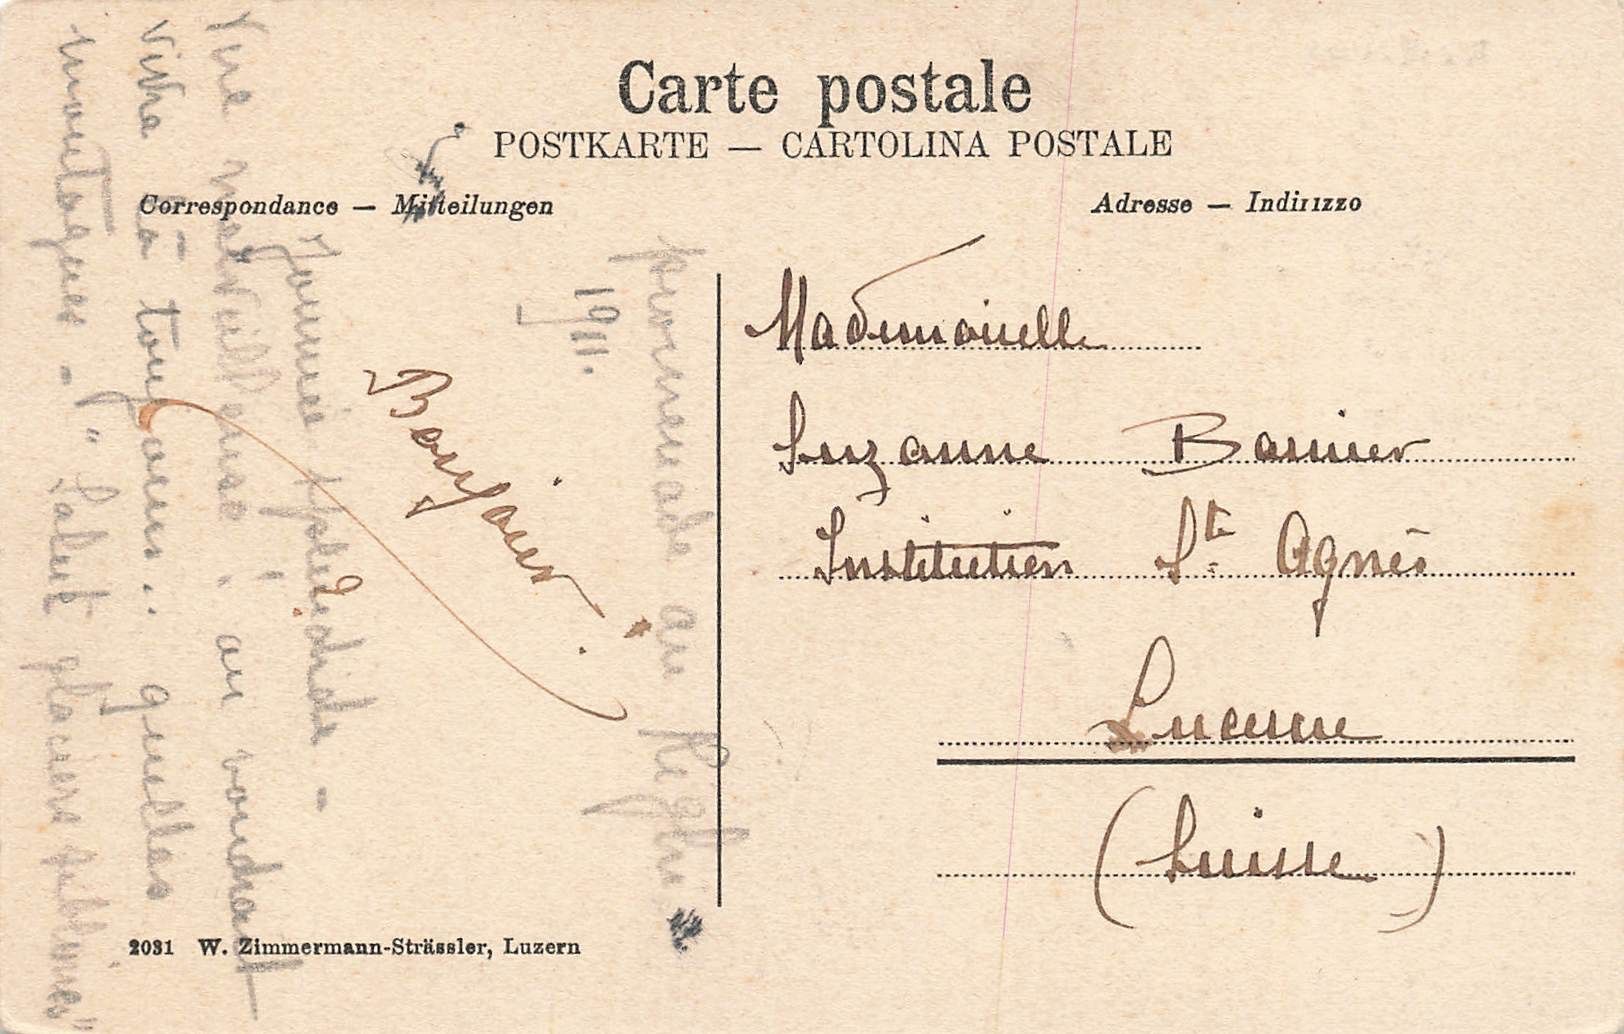 Carte postale
POSTKARTE — CARTOLINA POSTALE
Correspondance — Mitteilungen
Adresse — Indirizzo
promenade au Righi
1911.
Journée splendide -
Vue merveilleuse, on voudrait
vivre là toujours.. quelles
montagnes - "Salut glaciers sublimes"
Bonjour.
Mademoiselle
Suzanne
Institution Ste Agnès
Lucerne
(Suisse)
2031 W. Zimmermann-Strässler, Luzern